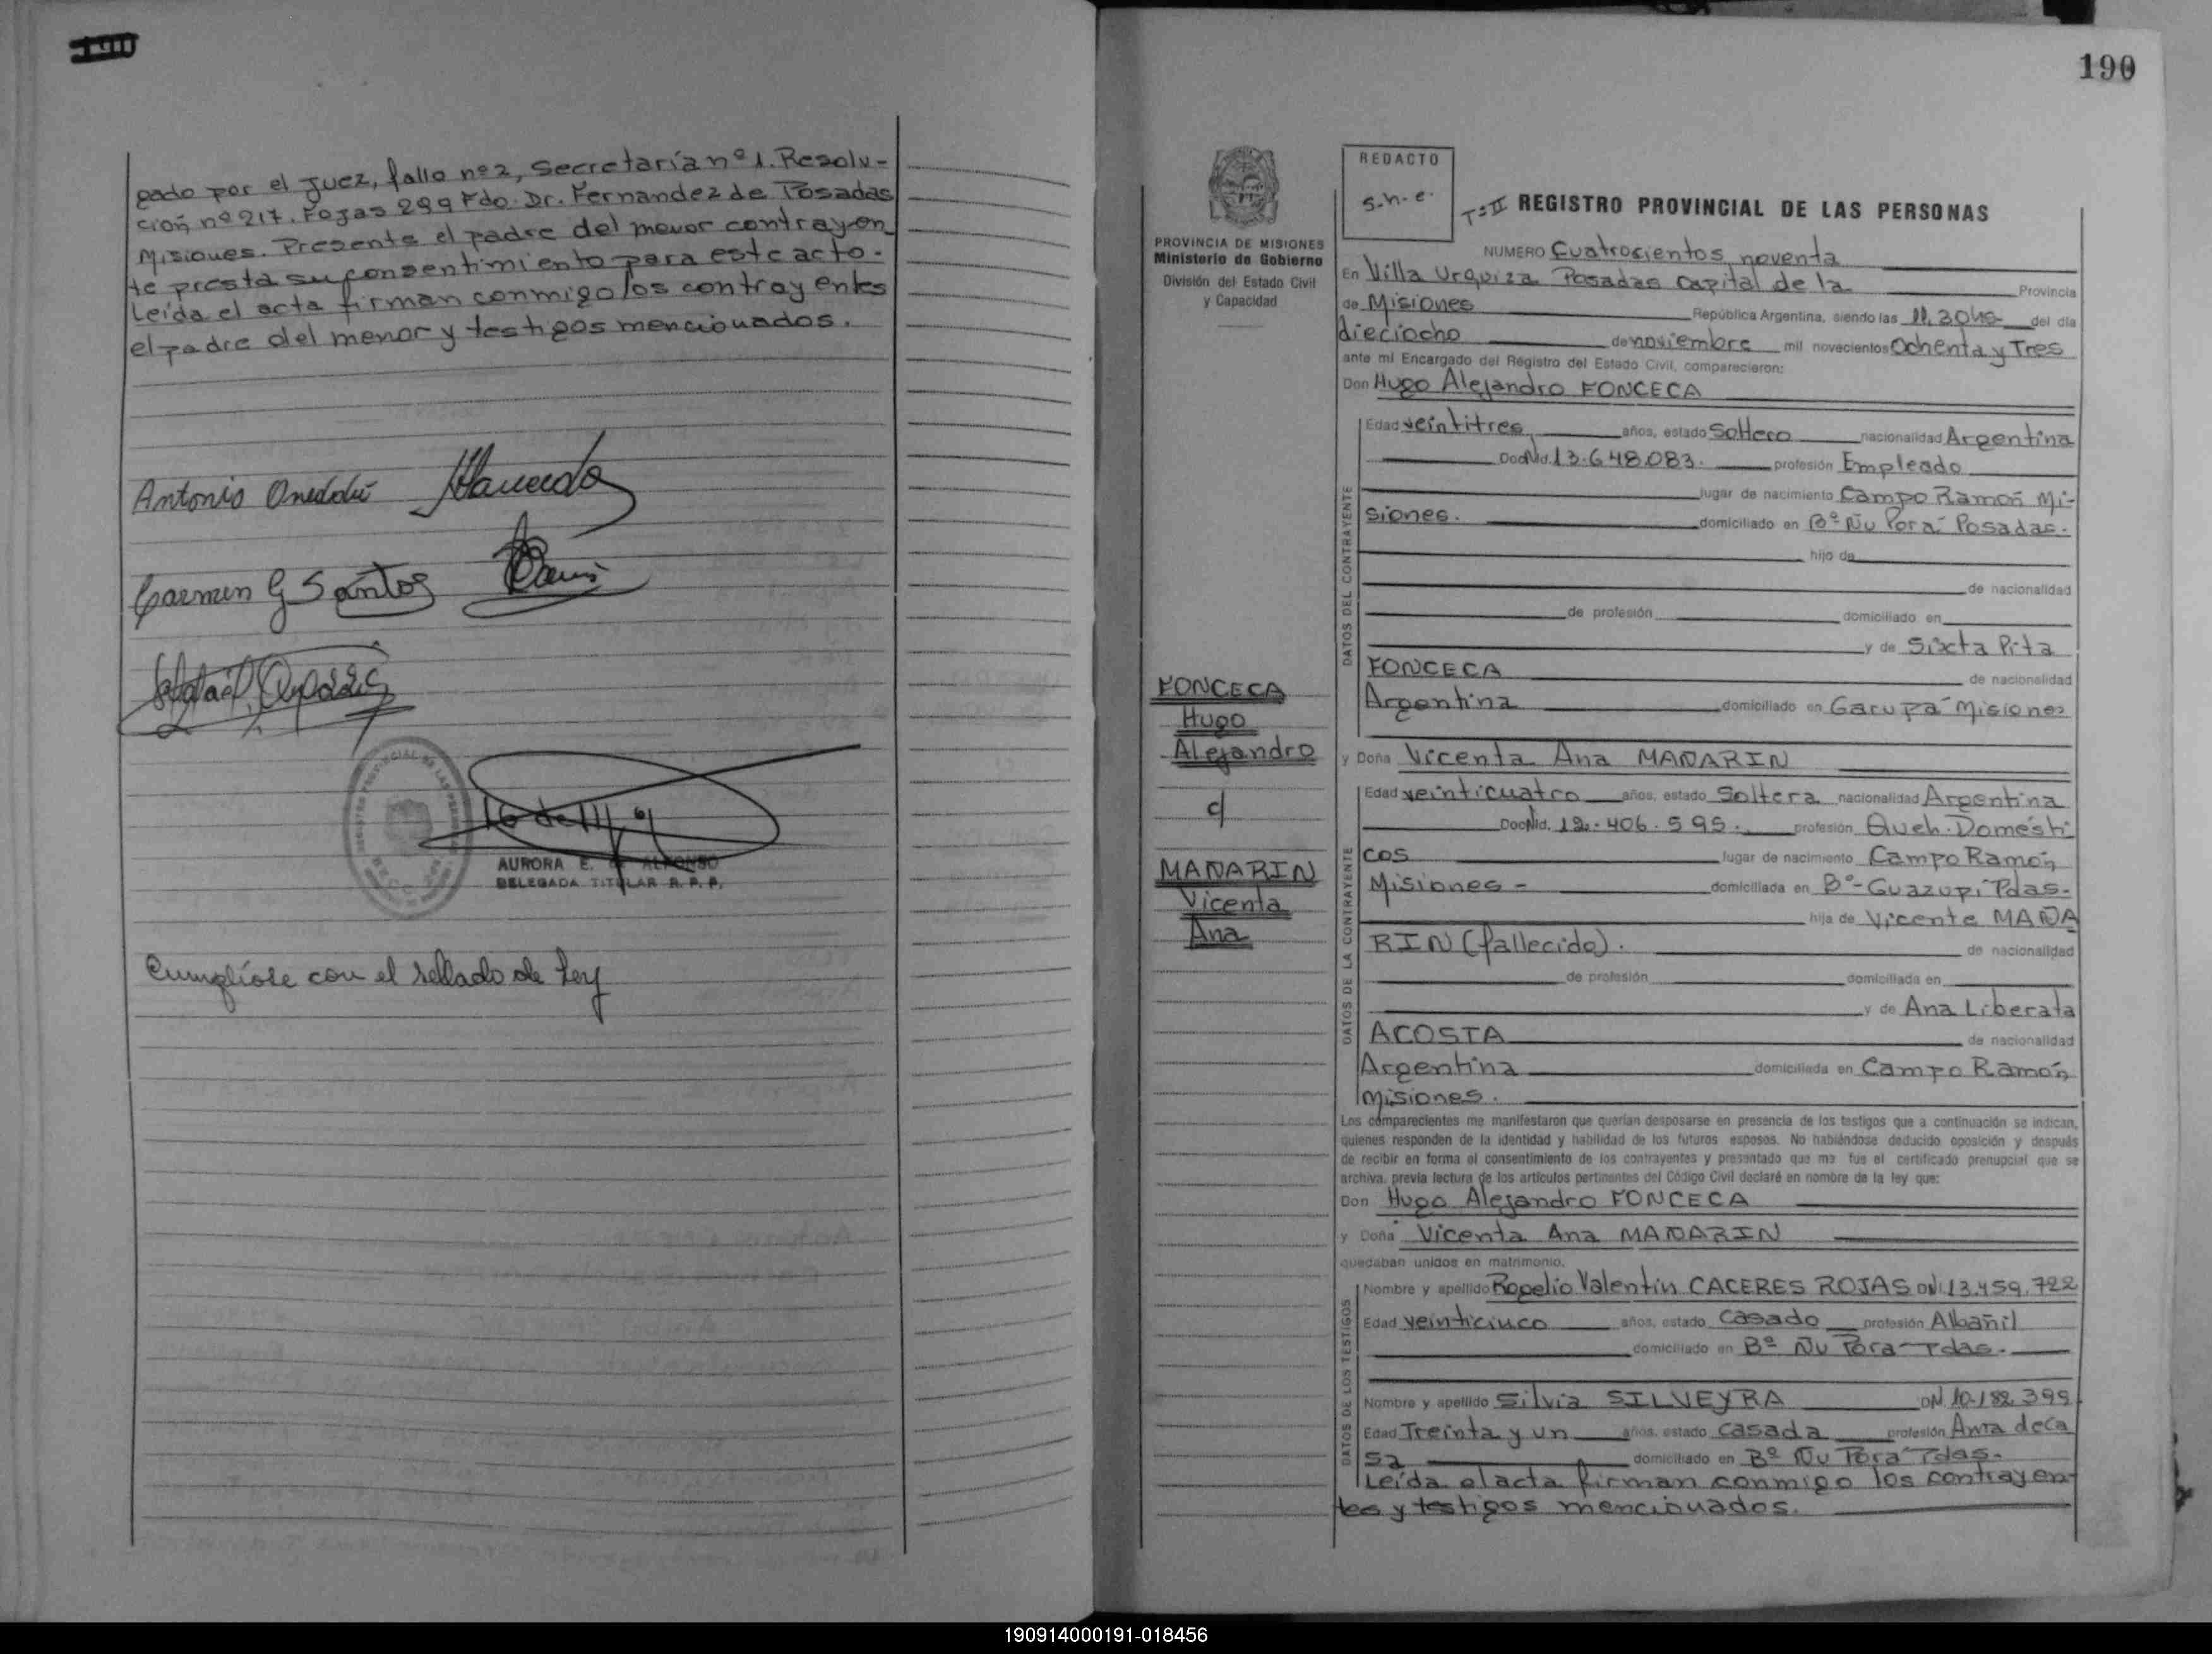 190
gado por el Juez, fallo nº2, Secretaría nº1. Resolu-
ción nº217. Fojas 299 Fdo. Dr. Fernandez de Posadas
Misiones. Presente el padre del menor contrayen
te presta su consentimiento para este acto.
Leída el acta firman conmigo los contrayentes
el padre del menor y testigos mencionados.
Antonio
Carmen G Santos
16 de 111
AURORA E. DE ALFONSO
DELEGADA TITULAR R. P. P.
Cumplióse con el sellado de Ley
PROVINCIA DE MISIONES
Ministerio de Gobierno
División del Estado Civil
y Capacidad
FONCECA
Hugo
Alejandro
c/
MAÑARIN
Vicenta
Ana
REDACTO
s.h.e.
T=II REGISTRO PROVINCIAL DE LAS PERSONAS
NUMERO Cuatrocientos noventa
En Villa Urquiza Posadas Capital de la Provincia
de Misiones República Argentina, siendo las 11,30 hs del día
dieciocho de noviembre mil novecientos Ochenta y Tres
ante mi Encargado del Registro del Estado Civil, comparecieron:
Don Hugo Alejandro FONCECA
DATOS DEL CONTRAYENTE
Edad veintitres años, estado Soltero nacionalidad Argentina
Doc Nid. 13.648.083. profesión Empleado
lugar de nacimiento Campo Ramón Mi-
siones. domiciliado en Bº Ñu Porá Posadas.
hijo de
de nacionalidad
de profesión domiciliado en
y de Sixta Pita
FONCECA de nacionalidad
Argentina domiciliado en Garupá Misiones
y Doña Vicenta Ana MAÑARIN
DATOS DE LA CONTRAYENTE
Edad veinticuatro años, estado Soltera nacionalidad Argentina
Doc Nid. 12.406.595. profesión Queh. Domésti
cos lugar de nacimiento Campo Ramón
Misiones - domiciliada en Bº-Guazupí Pdas.
hija de Vicente MAÑA
RIN (fallecido). de nacionalidad
de profesión domiciliada en
y de Ana Liberata
ACOSTA de nacionalidad
Argentina domiciliada en Campo Ramón
Misiones.
Los comparecientes me manifestaron que querían desposarse en presencia de los testigos que a continuación se indican,
quienes responden de la identidad y habilidad de los futuros esposos. No habiéndose deducido oposición y después
de recibir en forma el consentimiento de los contrayentes y presentado que me fue el certificado prenupcial que se
archiva, previa lectura de los artículos pertinentes del Código Civil declaré en nombre de la ley que:
Don Hugo Alejandro FONCECA
y Doña Vicenta Ana MAÑARIN
quedaban unidos en matrimonio.
DATOS DE LOS TESTIGOS
Nombre y apellido Rogelio Valentin CACERES ROJAS DNI 13.459.722
Edad veinticinco años, estado Casado profesión Albañil
domiciliado en Bº Ñu Porá Pdas.
Nombre y apellido Silvia SILVEYRA DNI 10.182.399
Edad Treinta y un años, estado casada profesión Ama de ca
sa domiciliado en Bº Ñu Porá Pdas.
Leída el acta firman conmigo los contrayen
tes y testigos mencionados.
190914000191-018456